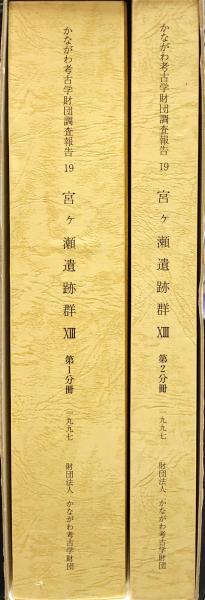 かながわ考古学財団調査報告 19 宮ヶ瀬遺跡群 XIII 第1分冊 一九九七 財団法人 かながわ考古学財団
かながわ考古学財団調査報告 19 宮ヶ瀬遺跡群 XIII 第2分冊 一九九七 財団法人 かながわ考古学財団